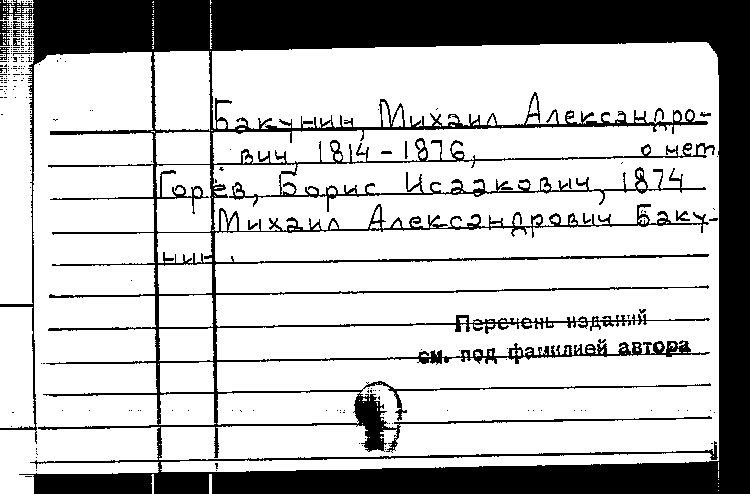 Бакунин, Михаил Александро-
вич, 1814-1876, о нет
Горев, Борис Исаакович, 1874
Михаил Александрович Баку-
нин.
Перечень изданий
см. под фамилией автора